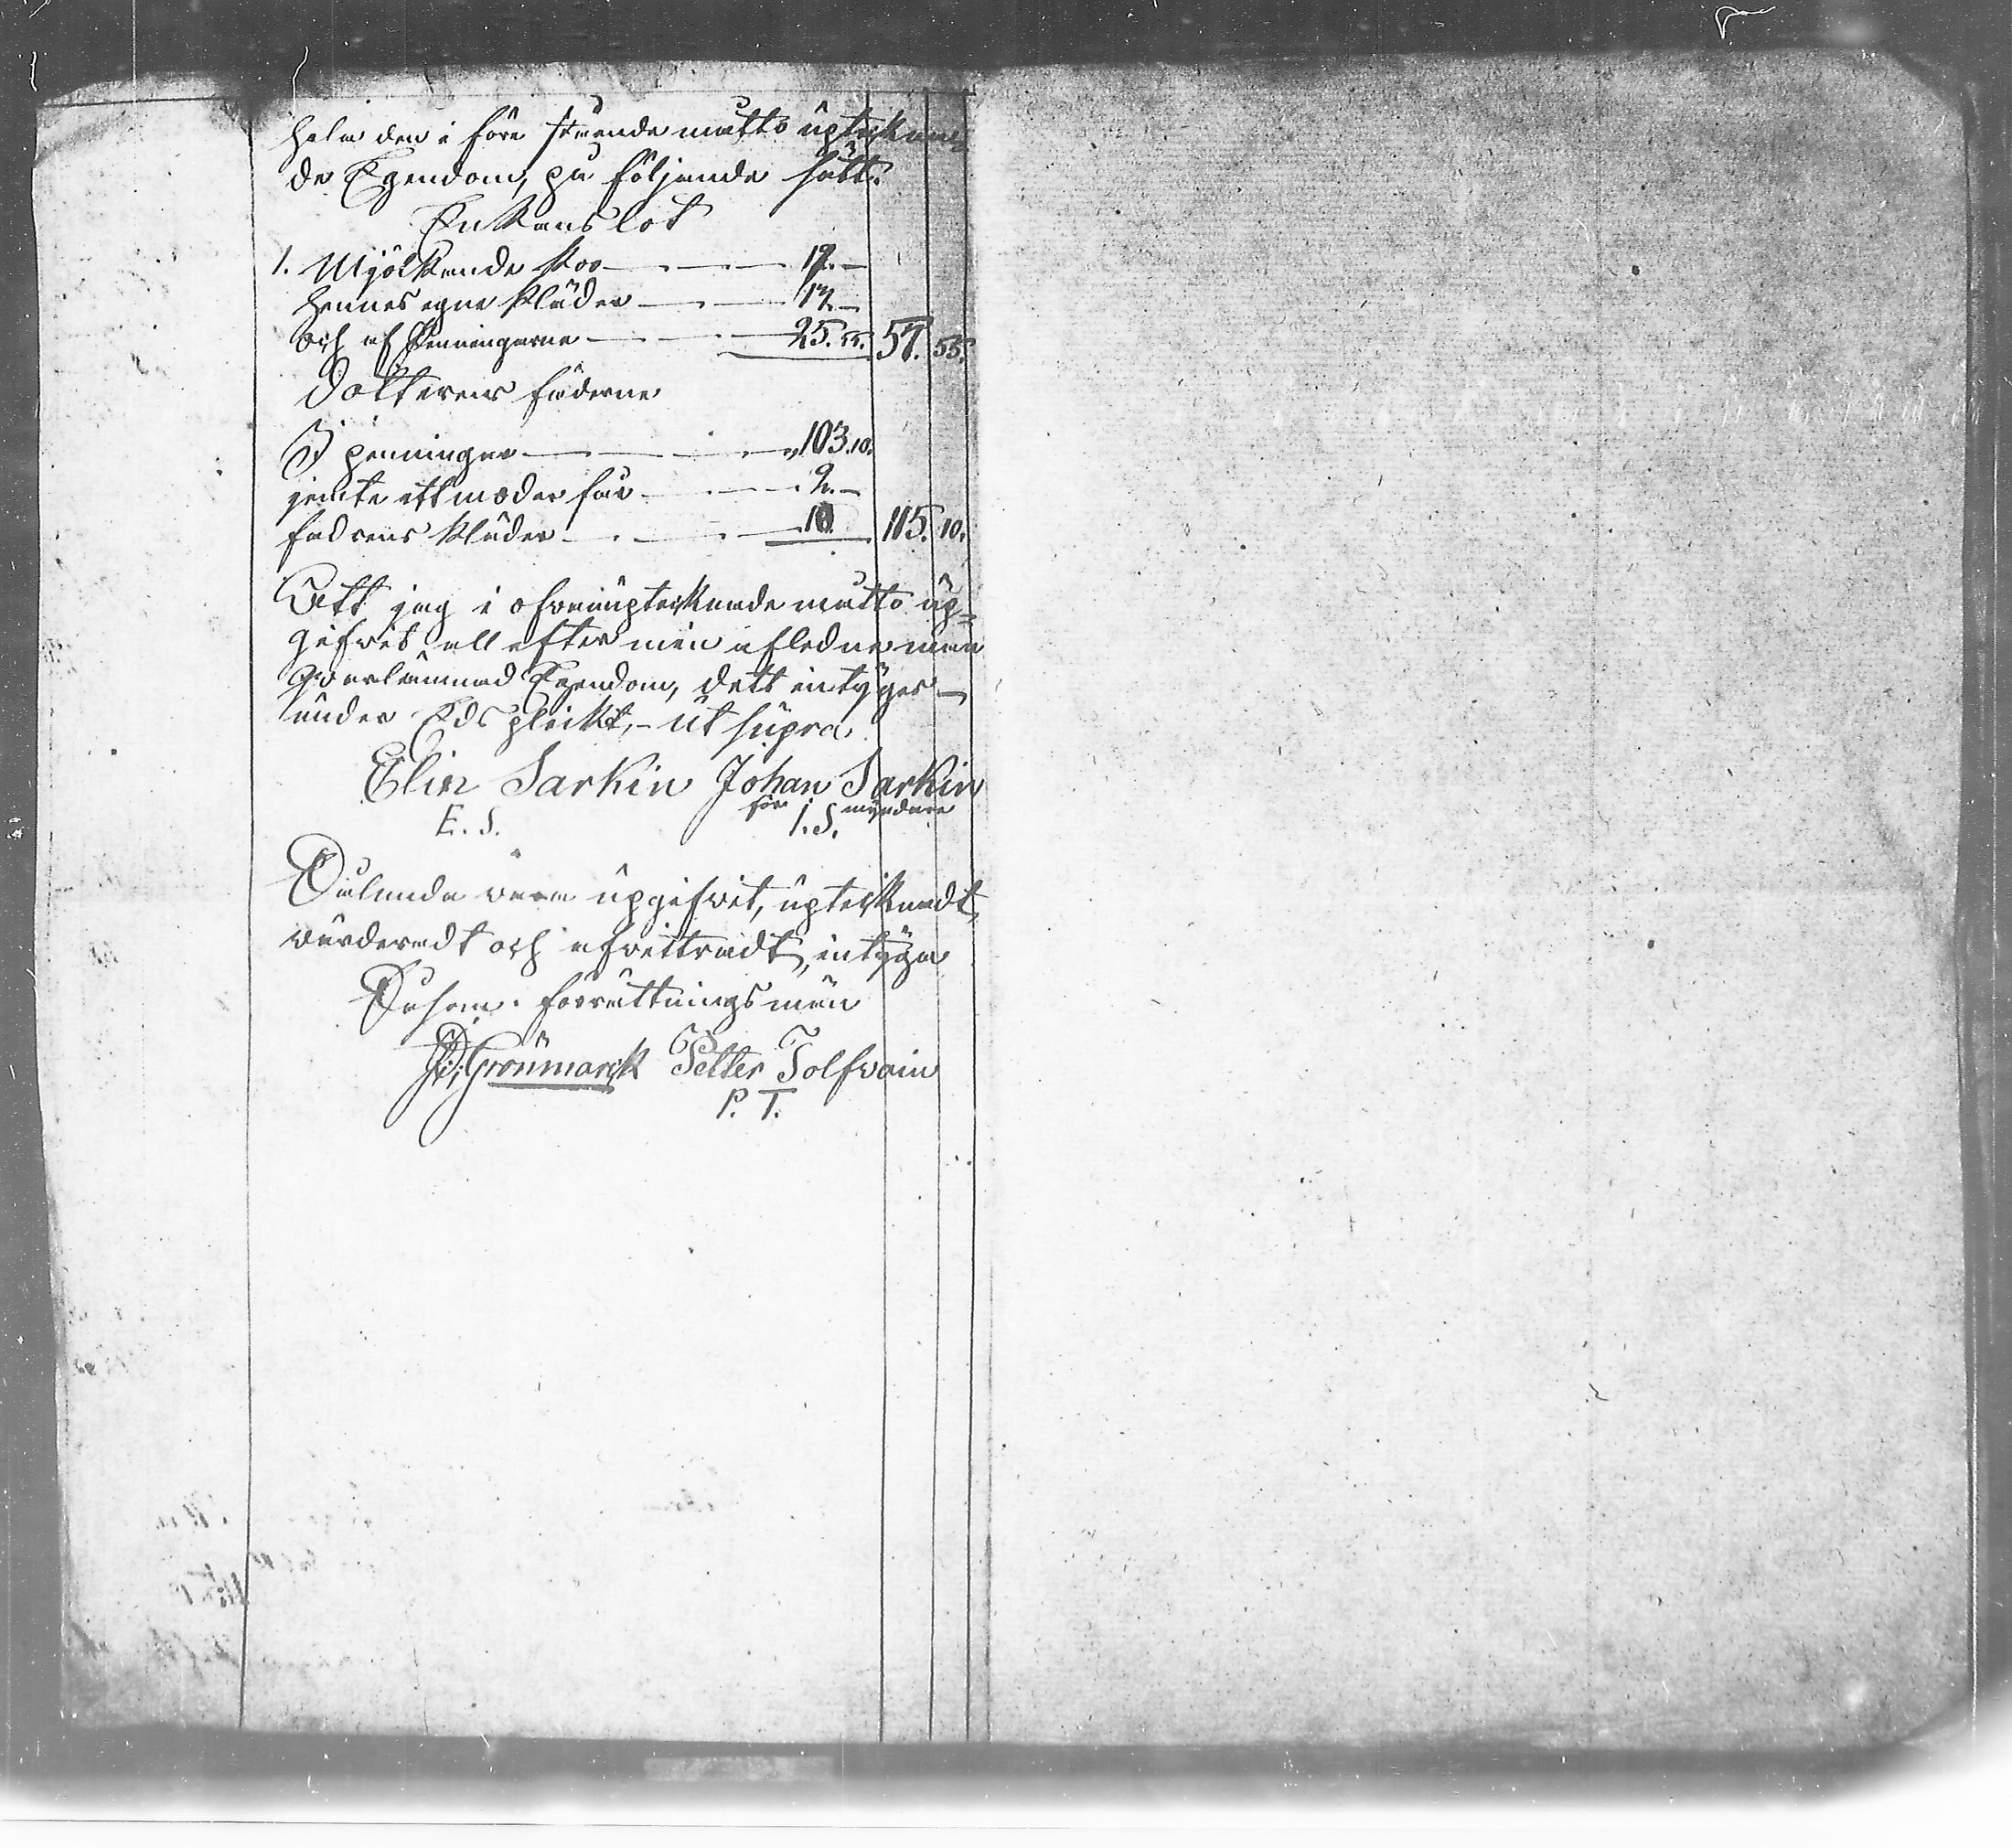 hela den i före stående måtto uptekna¬
de Egendom, på följande sätt.
Enkans lot
1. Mjölkande Koo — 19. —
Hennes egne Kläder — 12 —
och af Penningarne — 25. 55. 57. 55.
Dotterens fäderne
I penningar — 103. 10.
jemte ett moder får — 2. —
fadrens Kläder — 10 115. 10.
Att jag i ofvanupteknade måtto up=
gifvit all efter min aflidne man
qvarlämnad Egendom, dett intyges
under Eds plickt, - ut supra
Elin Sarkin Johan Sarkin
för myndare
E. S. I. S.
Sålunda vara upgifvit, upteknadt,
värderadt och afvittradt, intyga
Som förrättningsmän
Grönmarck Petter Tolfvain
P. T.